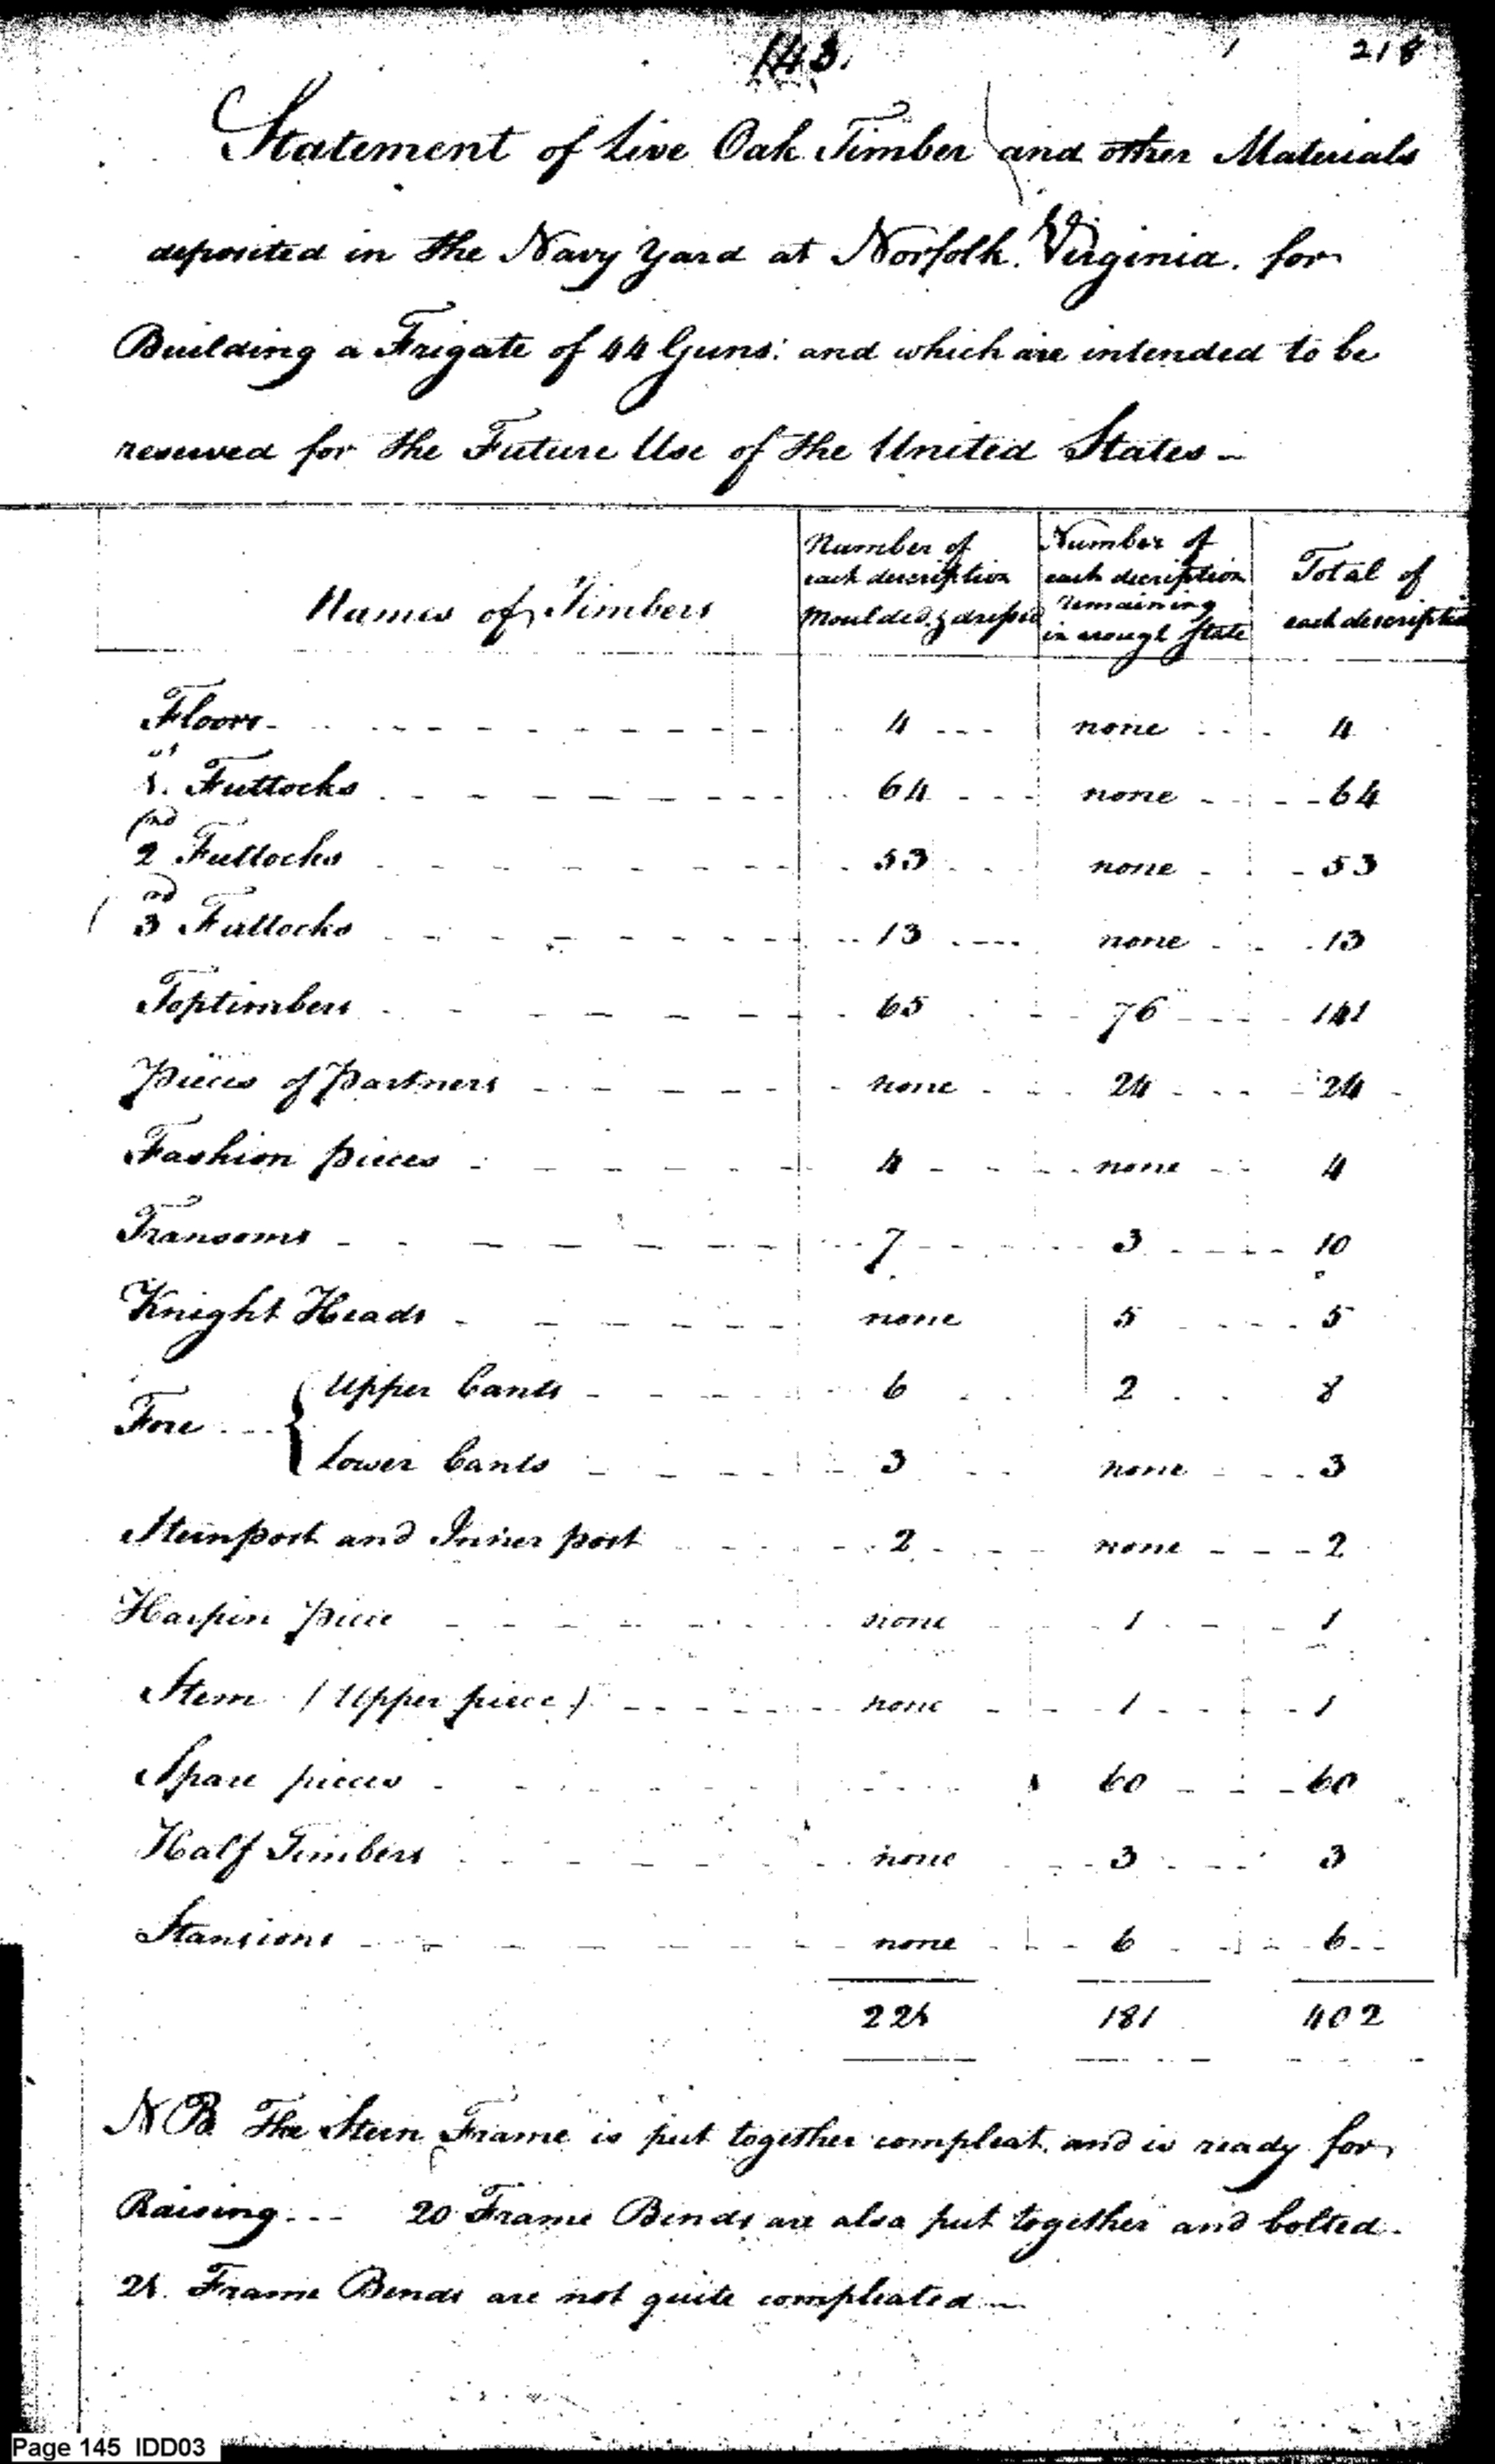 143.
218
Statement of Live Oak Timber and other Materials
deposited in the Navy Yard at Norfolk. Virginia. for
Building a Frigate of 44 Guns: and which are intended to be
reserved for the Future Use of the United States —
Names of Timbers | Number of each description Moulded & dressed | Number of each description remaining in arough State | Total of each description
Floors - - - 4 - - - none - - 4
1st. Futtocks - - - 64 - - - none - - 64
2nd Futtocks - - - 53 - - - none - - 53
3rd Futtocks - - - 13 - - - none - - 13
Toptimbers - - - 65 - - - 76 - - - 141
Pieces of Partners - - - none - - - 24 - - - 24
Fashion pieces - - - 4 - - - none - - 4
Transoms - - - 7 - - - 3 - - - 10
Knight Heads - - - none 5 - - - 5
Fore - - { Upper Cants - - - 6 2 8
Lower Cants - - - 3 none - - - 3
Sternpost and Inner post - - - 2 - - - none - - - 2
Harpin piece - - - none - - - 1 - - - 1
Stem (Upper piece) - - - none - - - 1 - - - 1
Spare pieces - - - 60 - - - 60
Half Timbers - - - none - - - 3 - - - 3
Stansions - - - none - - - 6 - - - 6
221 181 402
NB. The Stern Frame is put together compleat. and is ready for
Raising - - - 20 Frame Bends are also put together and bolted -
21. Frame Bends are not quite compleated —
Page 145 IDD03